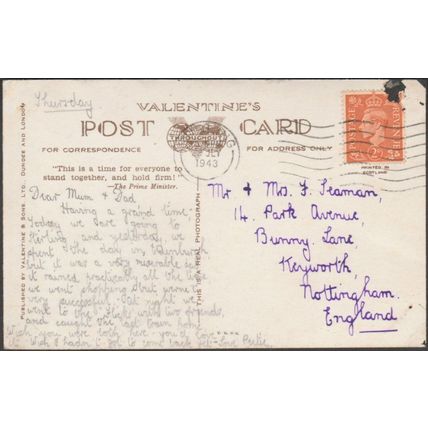 Thursday
VALENTINE'S
POST CARD
FOR CORRESPONDENCE
FOR ADDRESS ONLY
"This is a time for everyone to
stand together, and hold firm!"
—The Prime Minister.
PUBLISHED BY VALENTINE & SONS, LTD., DUNDEE AND LONDON
THIS IS A REAL PHOTOGRAPH
1943
POSTAGE
REVENUE
PRINTED IN
SCOTLAND
Dear Mum & Dad
Having a grand time,
Today we are going to
Stirling and yesterday, we
spent the day in Edinburgh
but it was a very miserable day
it rained practically all the time
we went shopping but weren't
very successful. At night we
went to the flicks with two friends,
and caught the last tram home.
Wish you were both here you'd love
Wish I hadn't got to come back Love
Mr & Mrs. F. Seaman,
14. Park Avenue,
Bunny Lane,
Keyworth,
Nottingham.
England